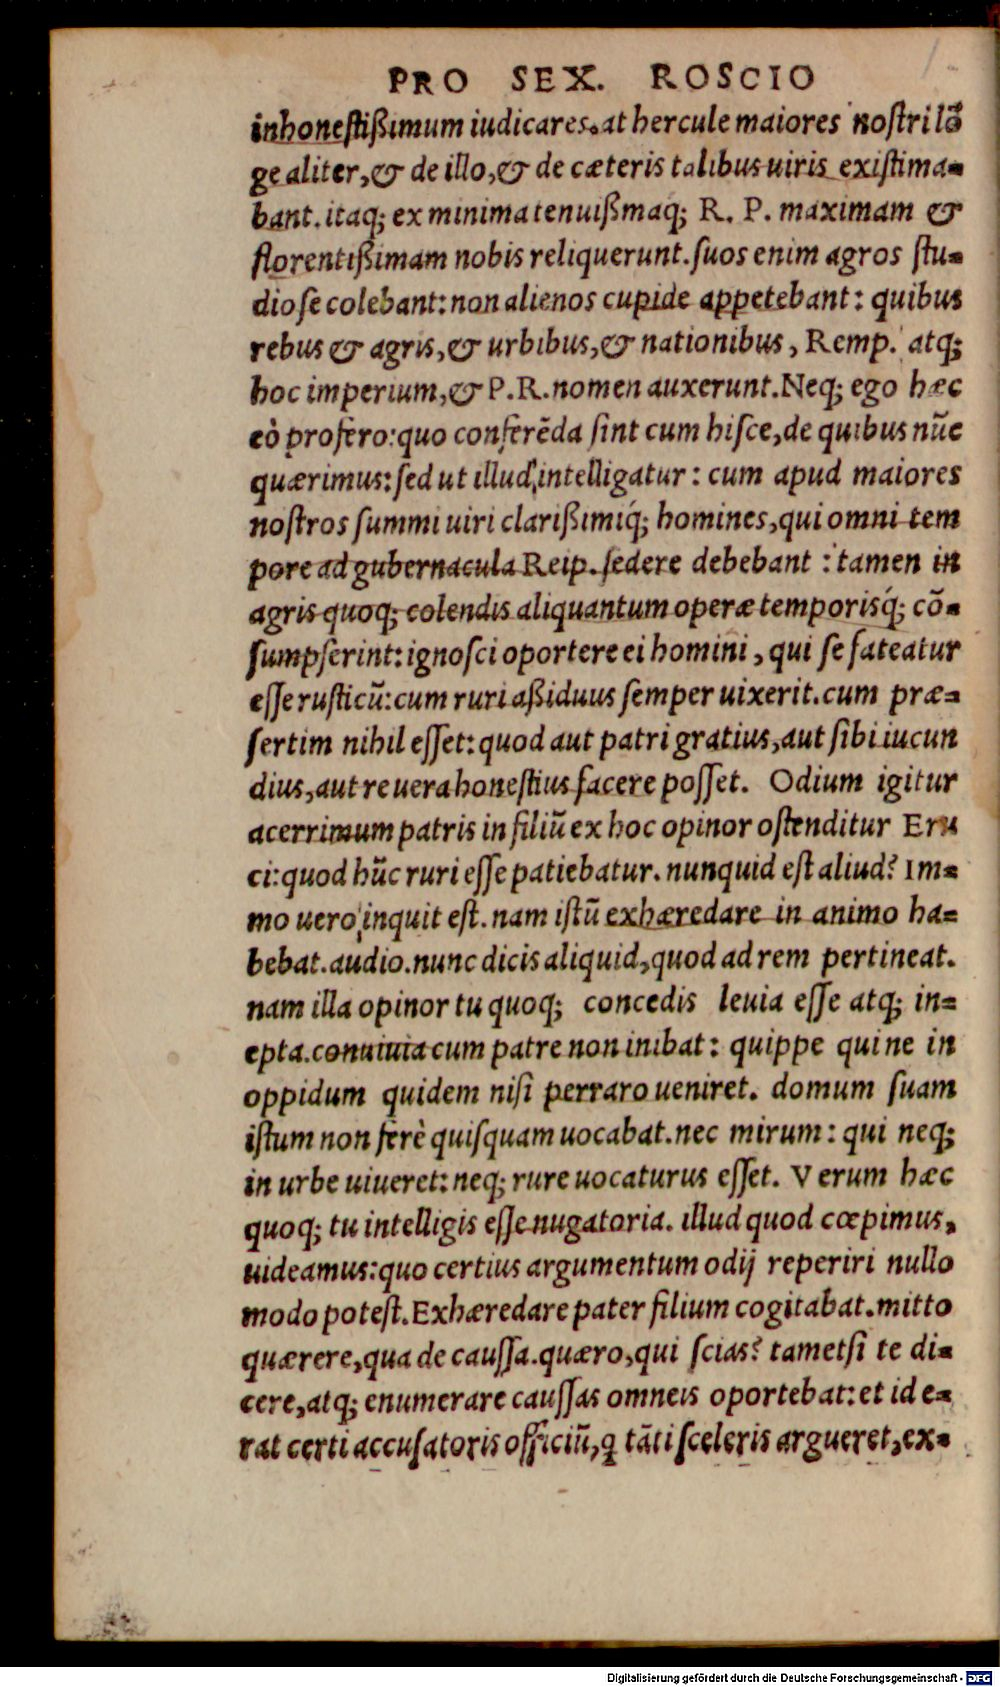 PRO SEX. ROSCIO
inhonestißimum iudicares. at hercule maiores nostri lõ
ge aliter, & de illo, & de cæteris talibus uiris existima-
bant. itaq; ex minima tenuißmaq́; R. P. maximam &
florentißimam nobis reliquerunt. suos enim agros stu-
diose colebant: non alienos cupide appetebant: quibus
rebus & agris, & urbibus, & nationibus, Remp. atq;
hoc imperium, & P. R. nomen auxerunt. Neq; ego hæc
eò profero: quo conferẽda sint cum hisce, de quibus nũc
quærimus: sed ut illud intelligatur: cum apud maiores
nostros summi uiri clarißimiq́; homines, qui omni tem
pore ad gubernacula Reip. sedere debebant: tamen in
agris quoq; colendis aliquantum operæ temporisq́; cõ-
sumpserint: ignosci oportere ei homini, qui se fateatur
esse rusticũ: cum ruri aßiduus semper uixerit. cum præ-
sertim nihil esset: quod aut patri gratius, aut sibi iucun
dius, aut re uera honestius facere posset. Odium igitur
acerrimum patris in filiũ ex hoc opinor ostenditur Eru
ci: quod hũc ruri esse patiebatur. nunquid est aliud? Im-
mo uero inquit est. nam istũ exhæredare in animo ha-
bebat. audio. nunc dicis aliquid, quod ad rem pertineat.
nam illa opinor tu quoq; concedis leuia esse atq; in-
epta. conuiuia cum patre non inibat: quippe qui ne in
oppidum quidem nisi perraro ueniret. domum suam
istum non ferè quisquam uocabat. nec mirum: qui neq;
in urbe uiueret: neq; rure uocaturus esset. Verum hæc
quoq; tu intelligis esse nugatoria. illud quod cœpimus,
uideamus: quo certius argumentum odij reperiri nullo
modo potest. Exhæredare pater filium cogitabat. mitto
quærere, qua de caussa. quæro, qui scias? tametsi te di-
cere, atq; enumerare caussas omneis oportebat: et id e-
rat certi accusatoris officiũ, q tãti sceleris argueret, ex-
Digitalisierung gefördert durch die Deutsche Forschungsgemeinschaft - DFG